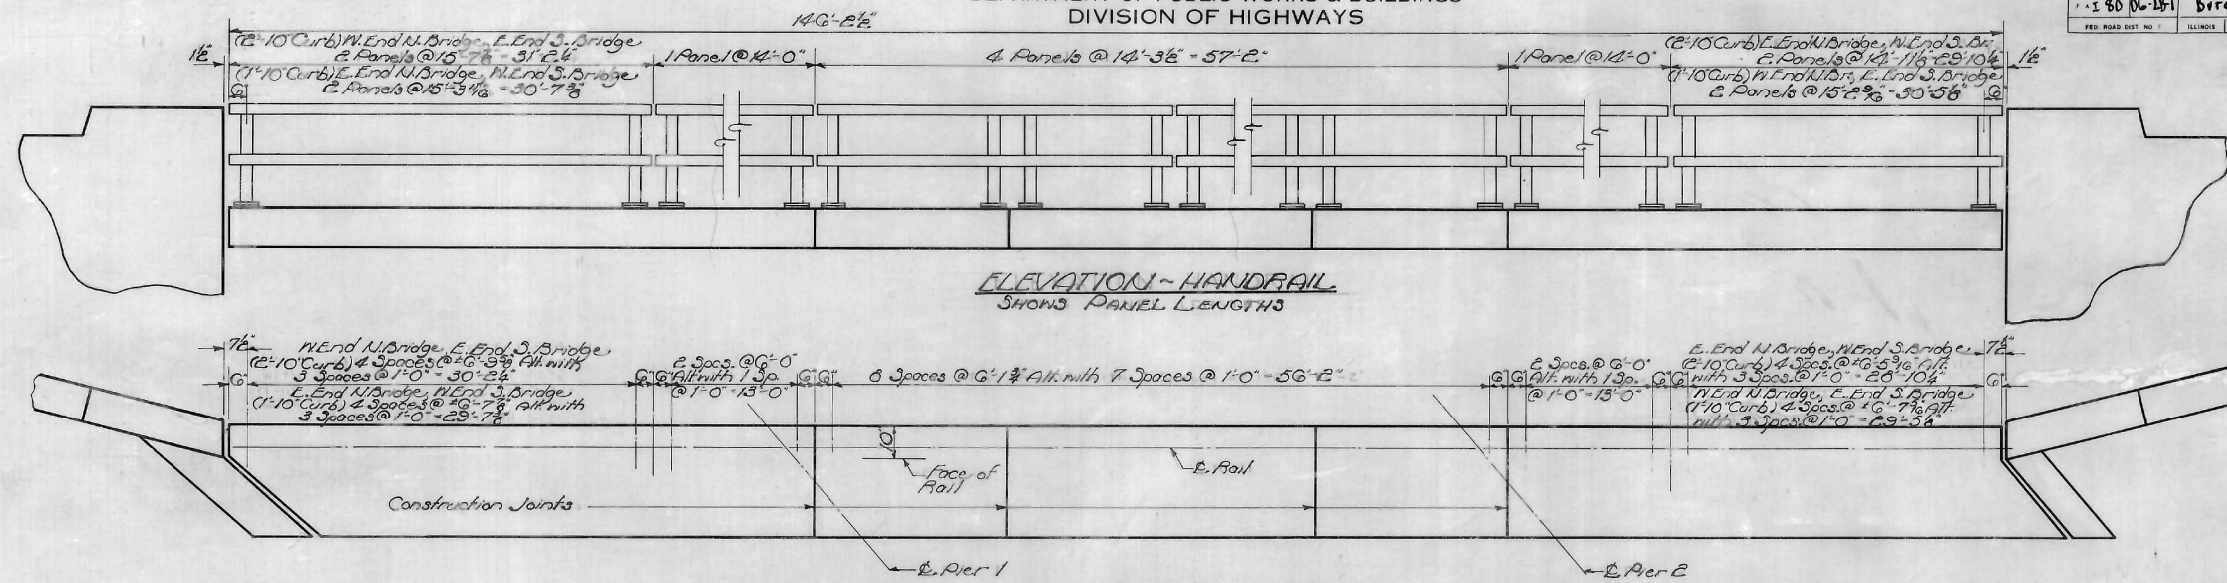 DEPARTMENT OF PUBLIC WORKS & BUILDINGS
DIVISION OF HIGHWAYS
I 80 06-2B-1
FED ROAD DIST NO 7 ILLINOIS
146'-2½"
1½"
(2'-10" Curb) W. End N. Bridge, E. End S. Bridge
2 Panels @ 15'-7⅛" = 31'-2¼"
(1'-10" Curb) E. End N. Bridge, W. End S. Bridge
2 Panels @ 15'-3 11/16" = 30'-7⅜"
6"
1 Panel @ 14'-0"
4 Panels @ 14'-3½" = 57'-2"
1 Panel @ 14'-0"
(2'-10" Curb) E. End N. Bridge, W. End S. Br.
2 Panels @ 14'-11⅛" = 29'-10¼"
(1'-10" Curb) W. End N. Br., E. End S. Bridge
2 Panels @ 15'-2 9/16" = 30'-5⅛"
6"
1½"
ELEVATION ~ HANDRAIL
SHOWS PANEL LENGTHS
7½"
W. End N. Bridge, E. End S. Bridge
(2'-10" Curb) 4 Spaces @ ±6'-9 9/16" Alt. with
3 Spaces @ 1'-0" = 30'-2¼"
E. End N. Bridge, W. End S. Bridge
(1'-10" Curb) 4 Spaces @ ±6'-7⅞" Alt. with
3 Spaces @ 1'-0" = 29'-7⅜"
6"
6" 6"
2 Spcs. @ 6'-0"
Alt. with 1 Sp.
@ 1'-0" = 13'-0"
6" 6"
8 Spaces @ 6'-1¾" Alt. with 7 Spaces @ 1'-0" = 56'-2"
6" 6"
2 Spcs. @ 6'-0"
Alt. with 1 Sp.
@ 1'-0" = 13'-0"
6" 6"
E. End N. Bridge, W. End S. Bridge
(2'-10" Curb) 4 Spaces @ ±6'-5 9/16" Alt.
with 3 Spcs. @ 1'-0" = 28'-10¼"
W. End N. Bridge, E. End S. Bridge
(1'-10" Curb) 4 Spcs. @ ±6'-7 5/16" Alt.
with 3 Spcs. @ 1'-0" = 29'-5⅛"
7½"
6"
10"
Face of
Rail
℄ Rail
Construction Joints
℄ Pier 1
℄ Pier 2